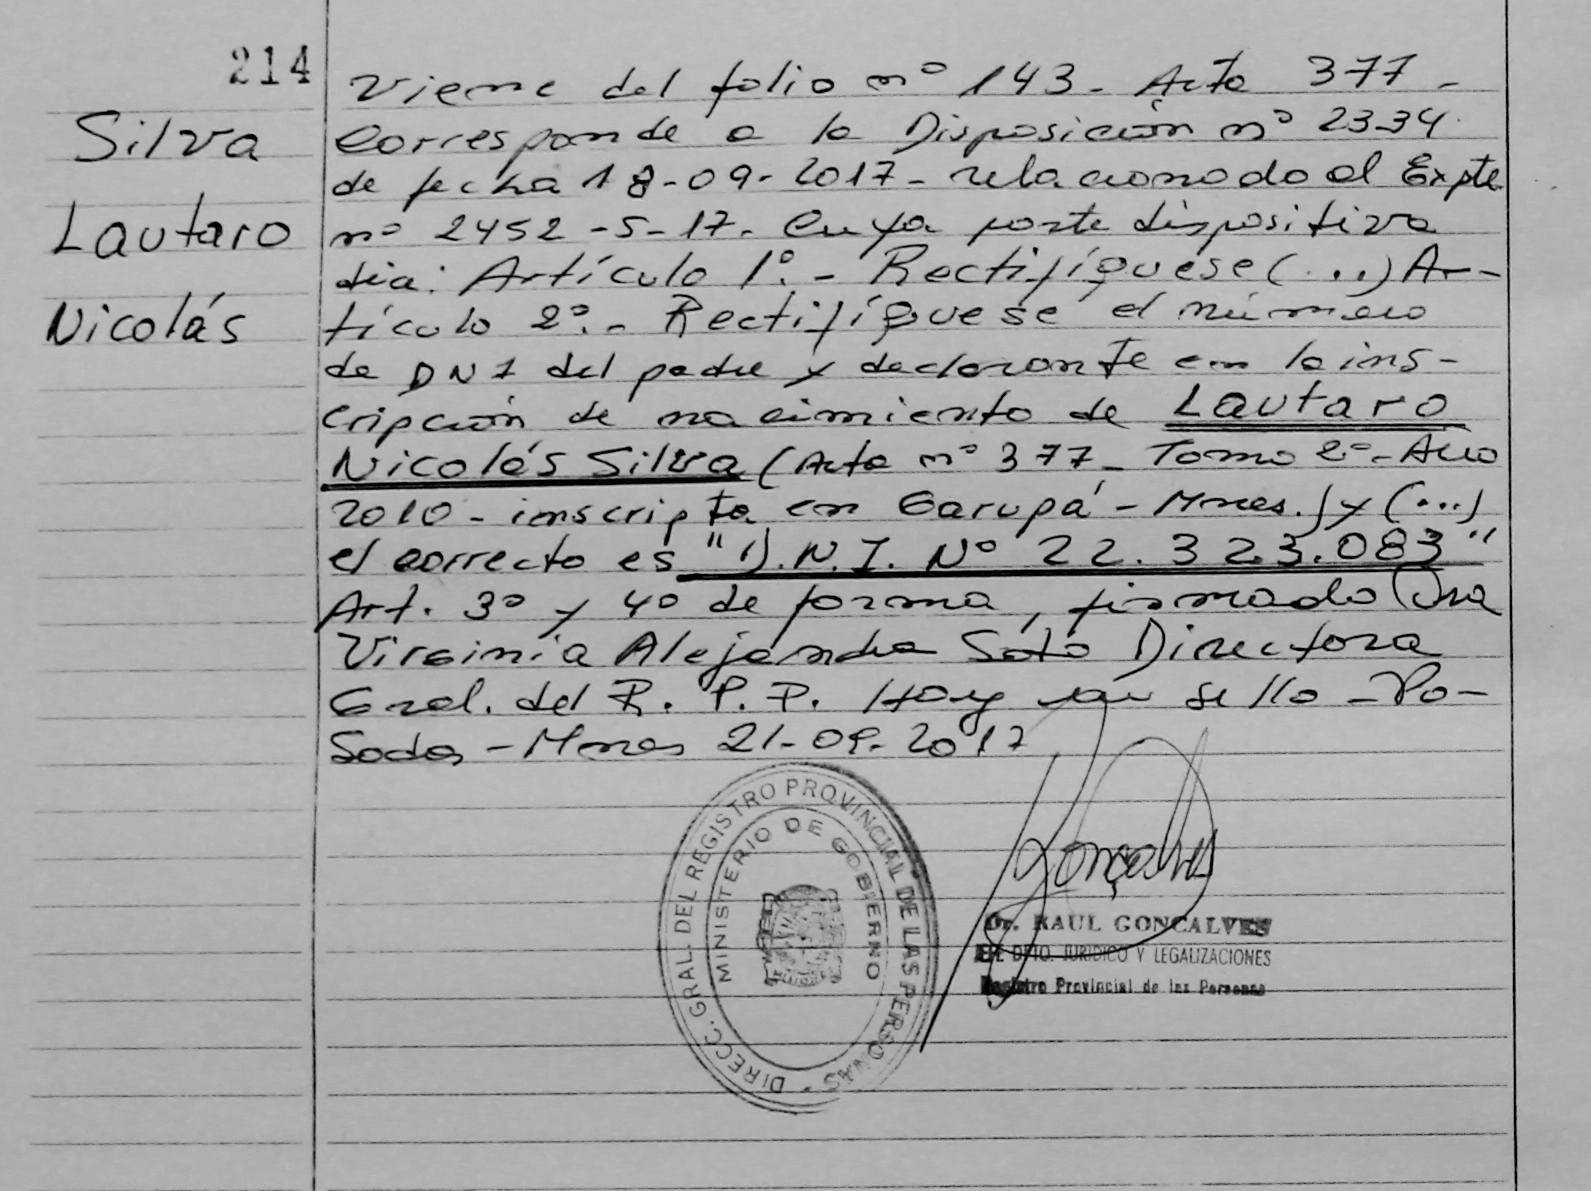 214
Silva
Lautaro
Nicolás
Viene del folio nº 143 - Acta 377 -
Corresponde a la Disposición nº 2334
de fecha 18-09-2017 - relacionado al Expte
nº 2452 -S- 17. Cuya parte dispositiva
dia: Artículo 1º. - Rectifíquese (...) Ar-
tículo 2º. - Rectifíquese el número
de DNI del padre y declarante en la ins-
cripción de nacimiento de Lautaro
Nicolás Silva (Acta nº 377 - Tomo 2º - Año
2010 - inscripta en Garupá - Mnes.) y (...)
el correcto es "D.N.I. Nº 22.323.083"
Art. 3º y 4º de forma, firmado Dra
Virginia Alejandra Soto Directora
Gral. del R. P. P. Hay un sello - Po-
sadas - Mnes 21-09-2017
DIRECC. GRAL. DEL REGISTRO PROVINCIAL DE LAS PERSONAS
MINISTERIO DE GOBIERNO
Dr. RAUL GONCALVES
DPTO. JURIDICO Y LEGALIZACIONES
Registro Provincial de las Personas